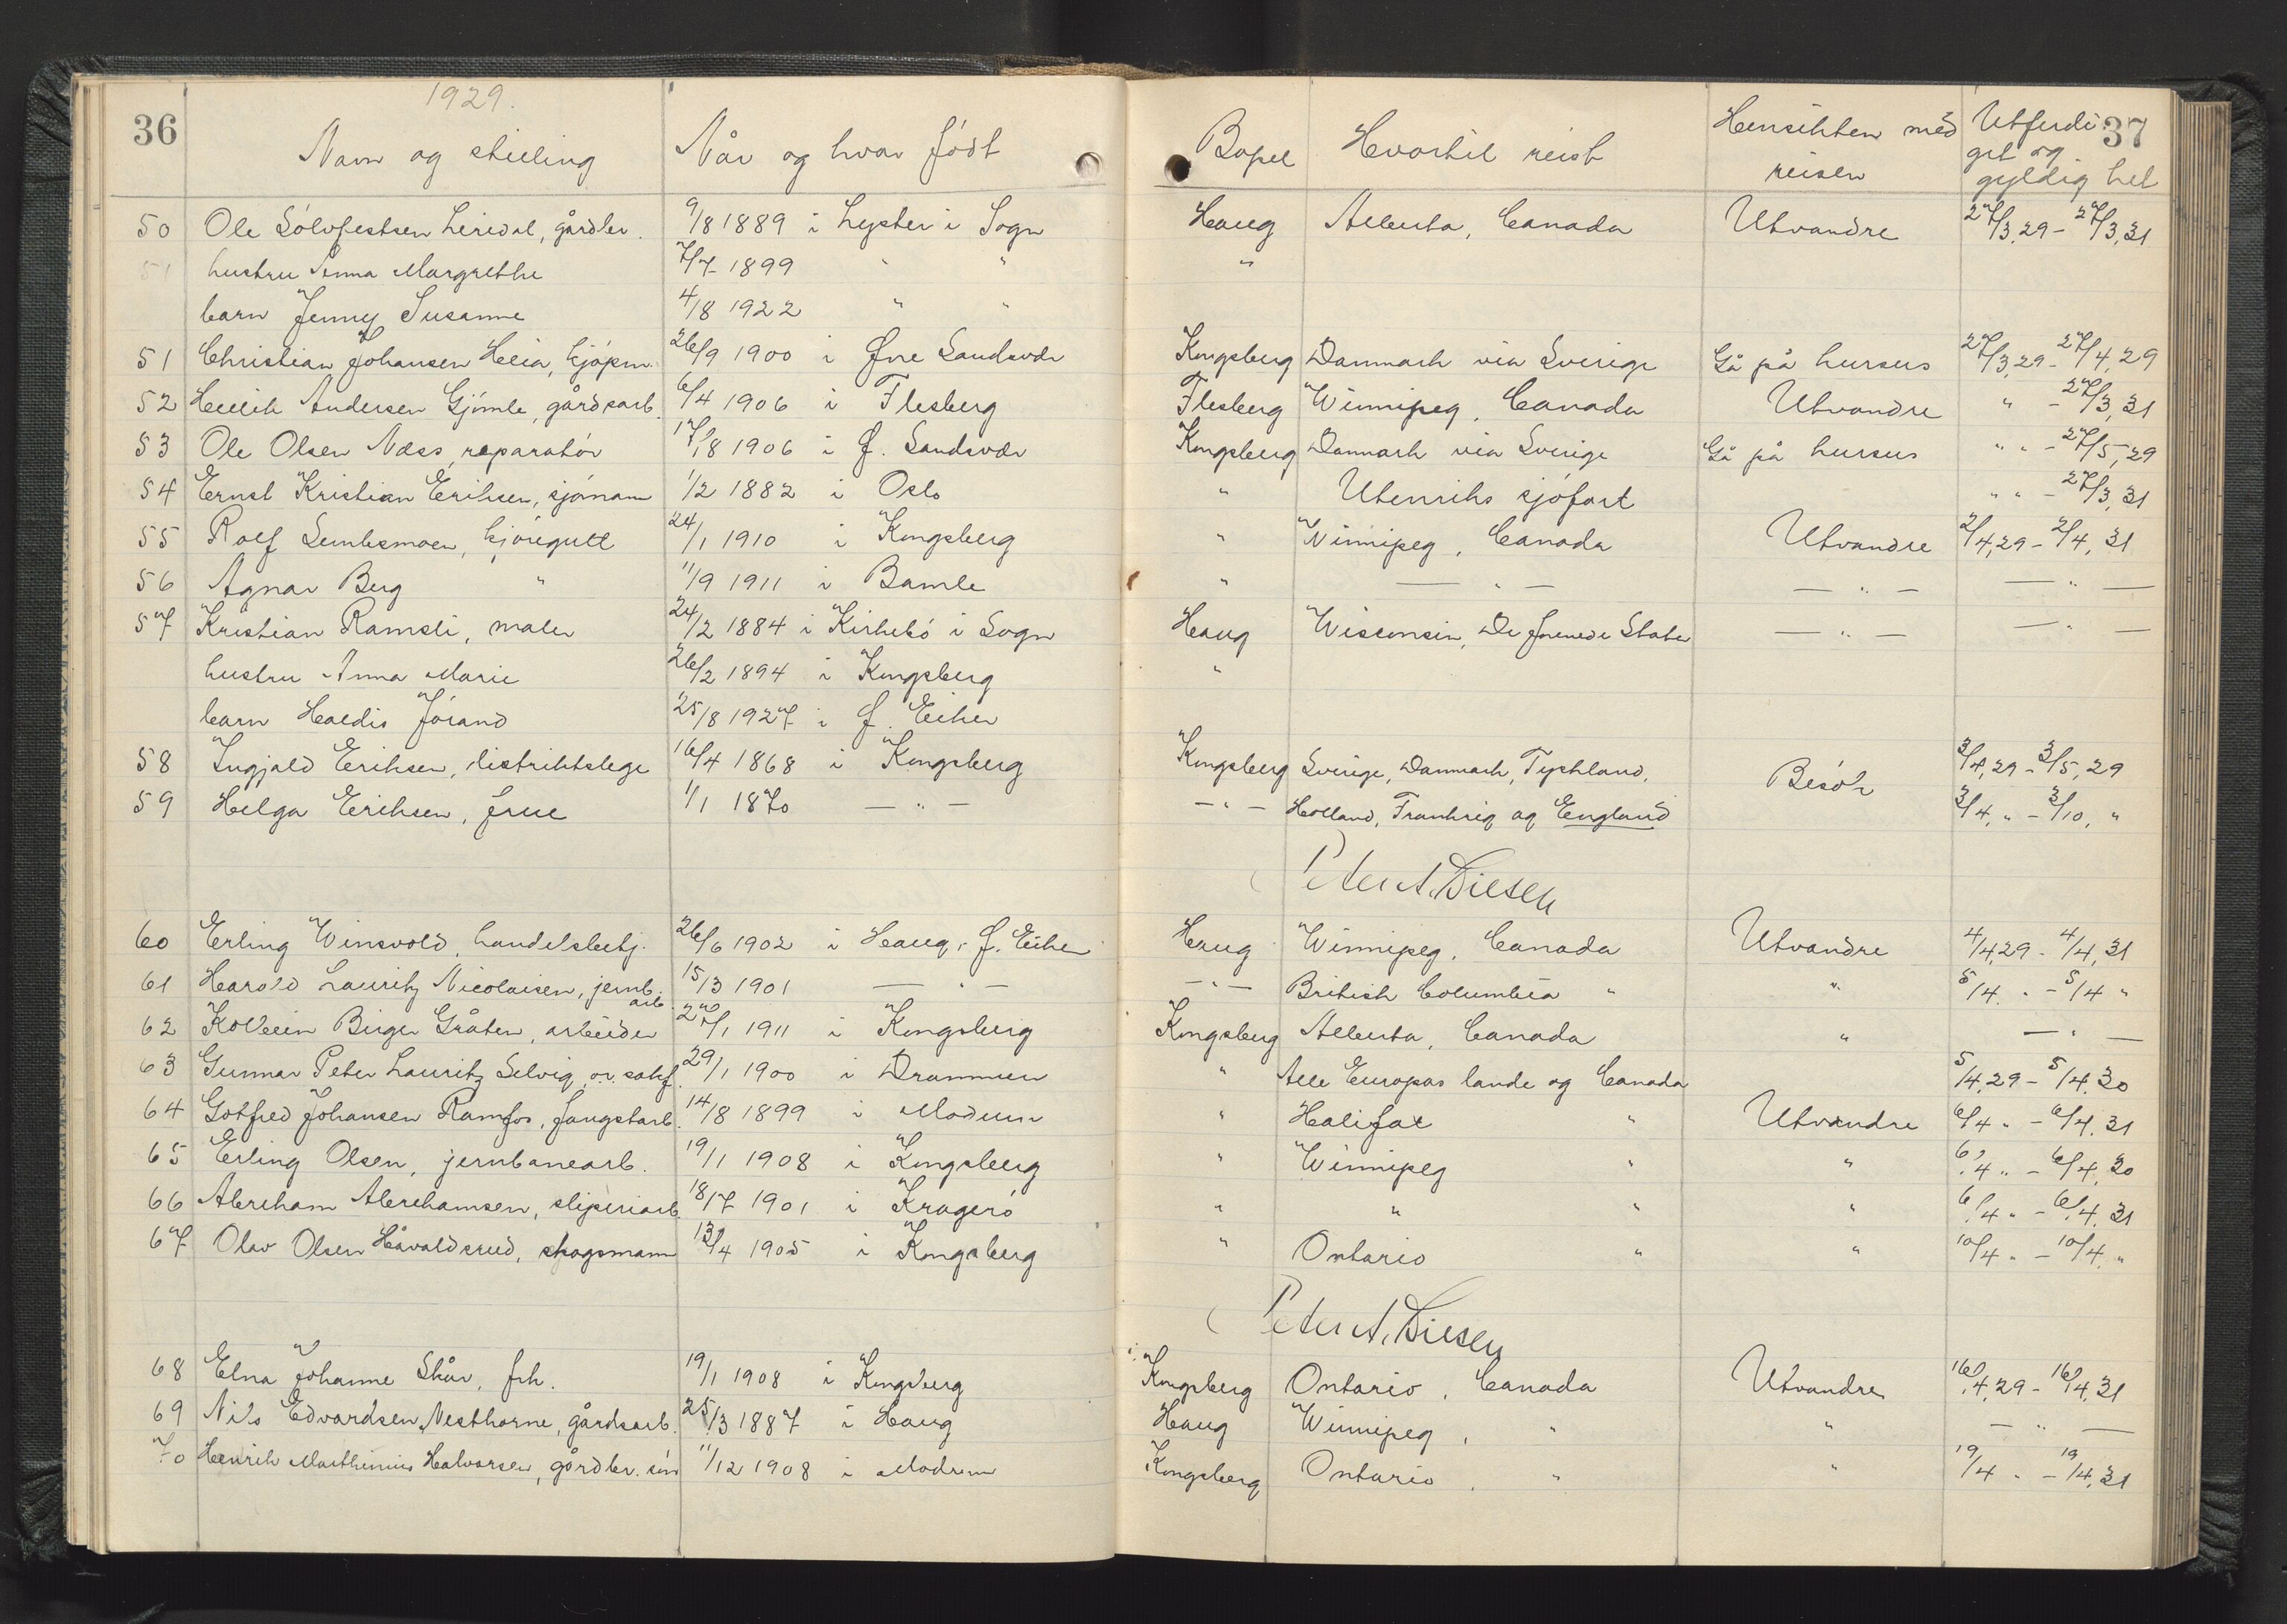 36 1929. 37
Navn og stilling Når og hvor født Bopel Hvortil reist Hensikten med reisen Utferdiget og gyldig til
50 Ole Sólvfestsen Leirdal, gårdbr. 9/8 1889 i Lyster i Sogn Haug Alberta, Canada Utvandre 27/3,29 - 27/3,31
51 hustru Anna Margrethe 7/7 1899 " " "
barn Jenny Susanne 4/8 1922 " "
51 Christian Johansen Heia, kjópm. 26/9 1900 i Øvre Sandsvær Kongsberg Danmark via Sverige Gå på kursus 27/3,29 - 27/4,29
52 Hellik Andersen Gjómle, gårdsarb. 6/4 1906 i Flesberg Flesberg Winnipeg, Canada Utvandre " - 27/3,31
53 Ole Olsen Næss, reparatór 17/8 1906 i Ø. Sandsvær Kongsberg Danmark via Sverige Gå på kursus " " - 27/5,29
54 Ernst Kristian Eriksen, sjómann 1/2 1882 i Oslo " Utenriks sjófart " " - 27/3,31
55 Rolf Lembesmoen, kjóregutt 24/1 1910 i Kongsberg " Winnipeg, Canada Utvandre 2/4,29 - 2/4,31
56 Agnar Berg " 11/9 1911 i Bamle " — " — — " — — " —
57 Kristian Ramsli, maler 24/2 1884 i Kirkebó i Sogn Haug Wisconsin, De forenede Stater — " — — " —
hustru Anna Marie 26/2 1894 i Kongsberg "
barn Haldis Jórand 25/8 1927 i Ø. Eiker
58 Ingjald Eriksen, distriktslege 16/4 1868 i Kongsberg Kongsberg Sverige, Danmark, Tyskland, Besók 3/4,29 - 3/5,29
59 Helga Eriksen, frue 1/1 1870 — " — — " — Holland, Frankrig og England 3/4, " - 3/10, "
Peter A. Diesen
60 Erling Winsvold, handelsbetj. 26/6 1902 i Haug, Ø. Eiker Haug Winnipeg, Canada Utvandre 4/4,29 - 4/4,31
61 Harald Lauritz Nicolaisen, jernb. arb. 15/3 1901 — " — — " — British Columbia " " 5/4. " - 5/4 "
62 Kolbein Birger Gråten, arbeider 27/1 1911 i Kongsberg Kongsberg Alberta, Canada " — " —
63 Gunnar Peter Lauritz Selvig, or. sakf. 29/1 1900 i Drammen " Alle Europas lande og Canada 5/4,29 - 5/4,30
64 Gotfred Johansen Ramfos, fangstarb. 14/8 1899 i Modum " Halifax " Utvandre 6/4 " - 6/4,31
65 Erling Olsen, jernbanearb. 19/1 1908 i Kongsberg " Winnipeg " " 6/4 " - 6/4,30
66 Abreham Abrehamsen, sliperiarb. 18/7 1901 i Krageró " " " " 6/4 " - 6/4,31
67 Olav Olsen Håvaldsrud, skogsmann 13/4 1905 i Kongsberg " Ontario " " 10/4 " - 10/4, "
Peter A. Diesen
68 Elna Johanne Skår, frk. 19/1 1908 i Kongsberg Kongsberg Ontario, Canada Utvandre 16/4,29 - 16/4,31
69 Nils Edvardsen Nesthorne, gårdsarb. 25/3 1887 i Haug Haug Winnipeg, " " — " —
70 Henrik Marthinius Halvorsen, gårdbr. són 11/12 1908 i Modum Kongsberg Ontario, " " 19/4 " - 19/4,31